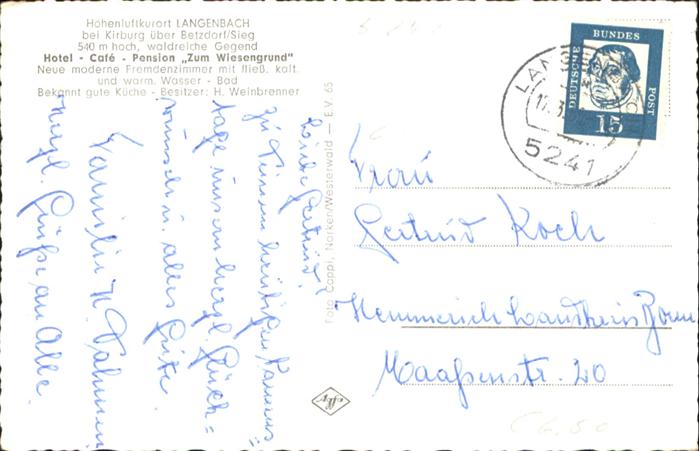 Höhenluftkurort LANGENBACH
bei Kirburg über Betzdorf/Sieg
540 m hoch, waldreiche Gegend
Hotel - Café - Pension „Zum Wiesengrund"
Neue moderne Fremdenzimmer mit fließ. kalt.
und warm. Wasser - Bad
Bekannt gute Küche - Besitzer: H. Weinbrenner
Foto Cappi, Norken/Westerwald — E.V. 65
Liebe Gertrud!
zu Deinem heutigen Namens=
tage unsern herzl. Glück=
wunsch u. alles Gute.
Familie H.
herzl. Grüße an Alle.
DEUTSCHE BUNDES POST
15
5241
Frau
Gertrud Koch
Maaßenstr. 20